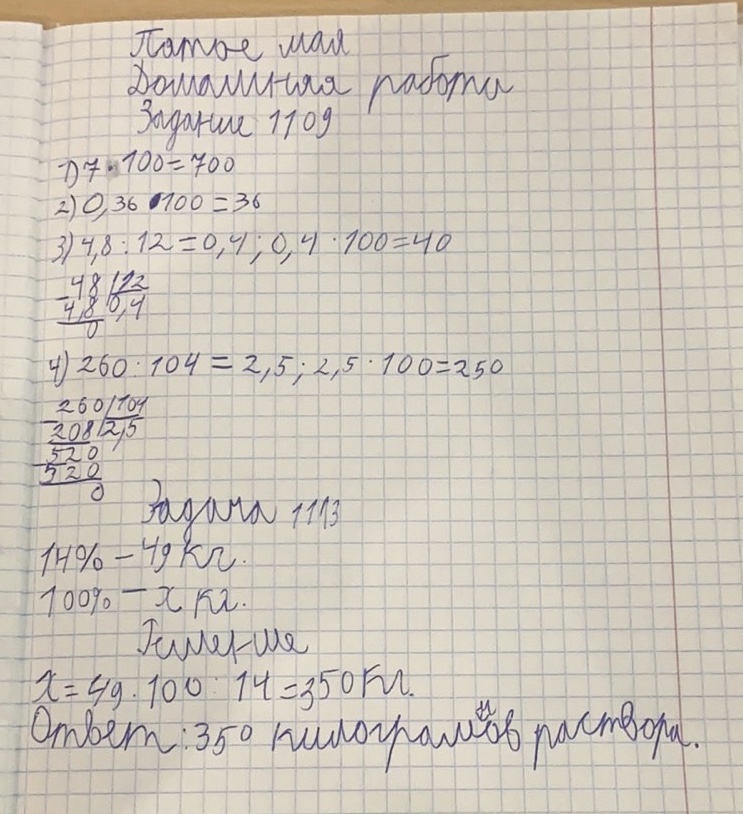 Пятое мая
Домашняя работа
Задание 1109
1) 7 · 100 = 700
2) 0,36 · 100 = 36
3) 4,8 : 12 = 0,4 ; 0,4 · 100 = 40
48 12
4,8 0,4
0
4) 260 : 104 = 2,5 ; 2,5 · 100 = 250
260 104
208 2,5
520
520
0
Задача 1113
14% – 49 кг.
100% – x кг.
x = 49 · 100 : 14 = 350 кг.
Ответ: 350 килограммов раствора.